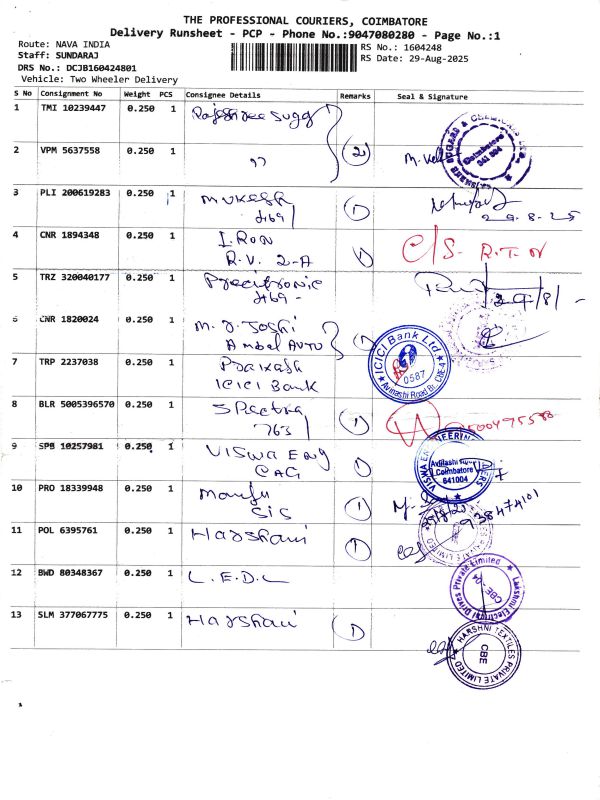 THE PROFESSIONAL COURIERS, COIMBATORE
Delivery Runsheet - PCP - Phone No.:9047080280 - Page No.:1
Route: NAVA INDIA
Staff: SUNDARAJ
DRS No.: DCJB160424801
Vehicle: Two Wheeler Delivery
RS No.: 1604248
RS Date: 29-Aug-2025
S No Consignment No Weight PCS Consignee Details Remarks Seal & Signature
1 TMI 10239447 0.250 1
2 VPM 5637558 0.250 1 " 2
3 PLI 200619283 0.250 1 Mukesh 1
469 29.8.25
4 CNR 1894348 0.250 1 I. RON 1 C/S R.T.N
R.V. 2-A
5 TRZ 320040177 0.250 1 Precitronic 29/8/-
469-
6 CNR 1820024 0.250 1 M. J. Joshi 1
Ambal AUTO
7 TRP 2237038 0.250 1 Prakash ICICI Bank Ltd
ICICI Bank 0587
Avinashi Road Br. CBE-4
8 BLR 5005396570 0.250 1 Spectra 1
763
9 SPB 10257981 0.250 1 VISWA ENG 1
CAG
Coimbatore
641004
10 PRO 18339948 0.250 1 Manju 1
SIS
11 POL 6395761 0.250 1 Harshani 1
12 BWD 80348367 0.250 1 L.E.D.L Lakshmi Electrical Drives Private Limited
CBE-04
13 SLM 377067775 0.250 1 Harshani 1 HARSHNI TEXTILES PRIVATE LIMITED
CBE